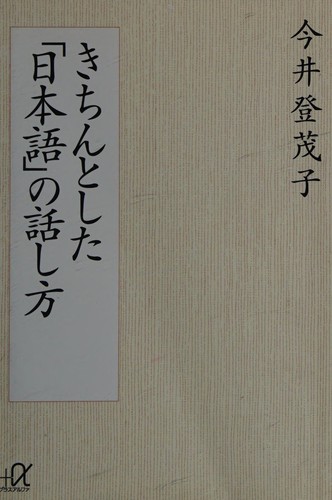 今井登茂子
きちんとした
「日本語」の話し方
+α
プラスアルファ